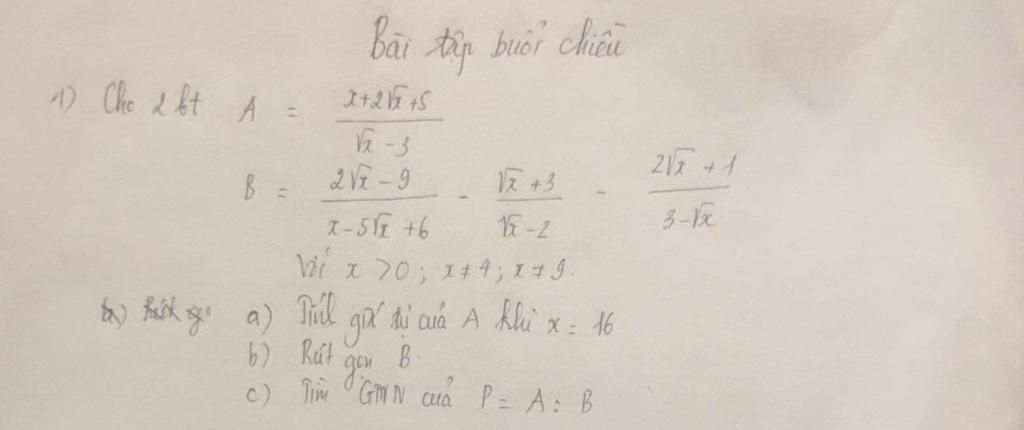 Bài tập buổi chiều
1) Cho 2 bt A = \frac{x+2\sqrt{x}+5}{\sqrt{x}-3}
B = \frac{2\sqrt{x}-9}{x-5\sqrt{x}+6} - \frac{\sqrt{x}+3}{\sqrt{x}-2} - \frac{2\sqrt{x}+1}{3-\sqrt{x}}
Với x > 0 ; x ≠ 4 ; x ≠ 9.
a) Tính giá trị của A khi x = 16
b) Rút gọn B.
c) Tìm GTNN của P = A : B